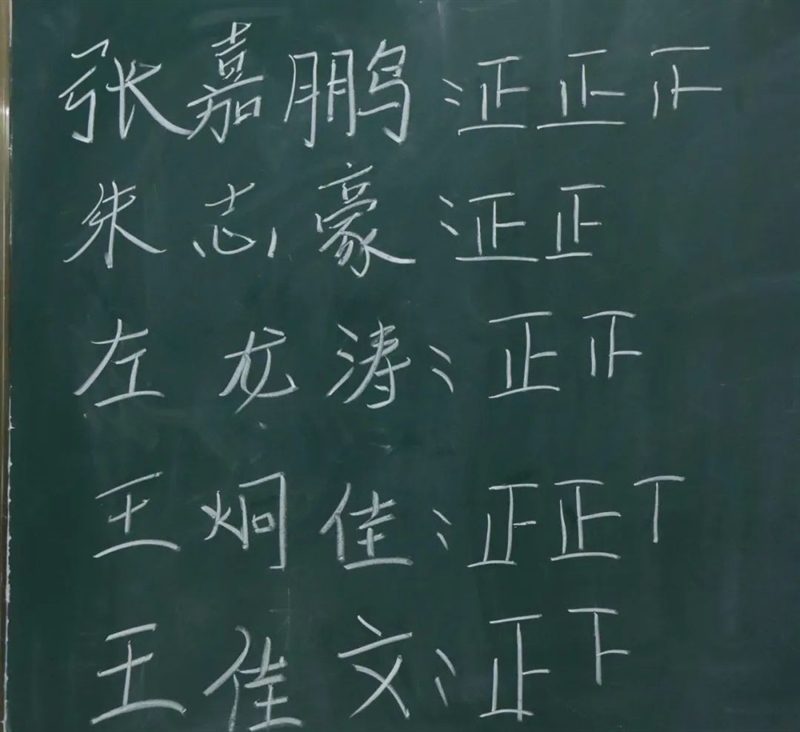 张嘉鹏：正正𤴓
朱志豪：正正
左龙涛：正𤴓
王炯佳：正正丅
王佳文：正下